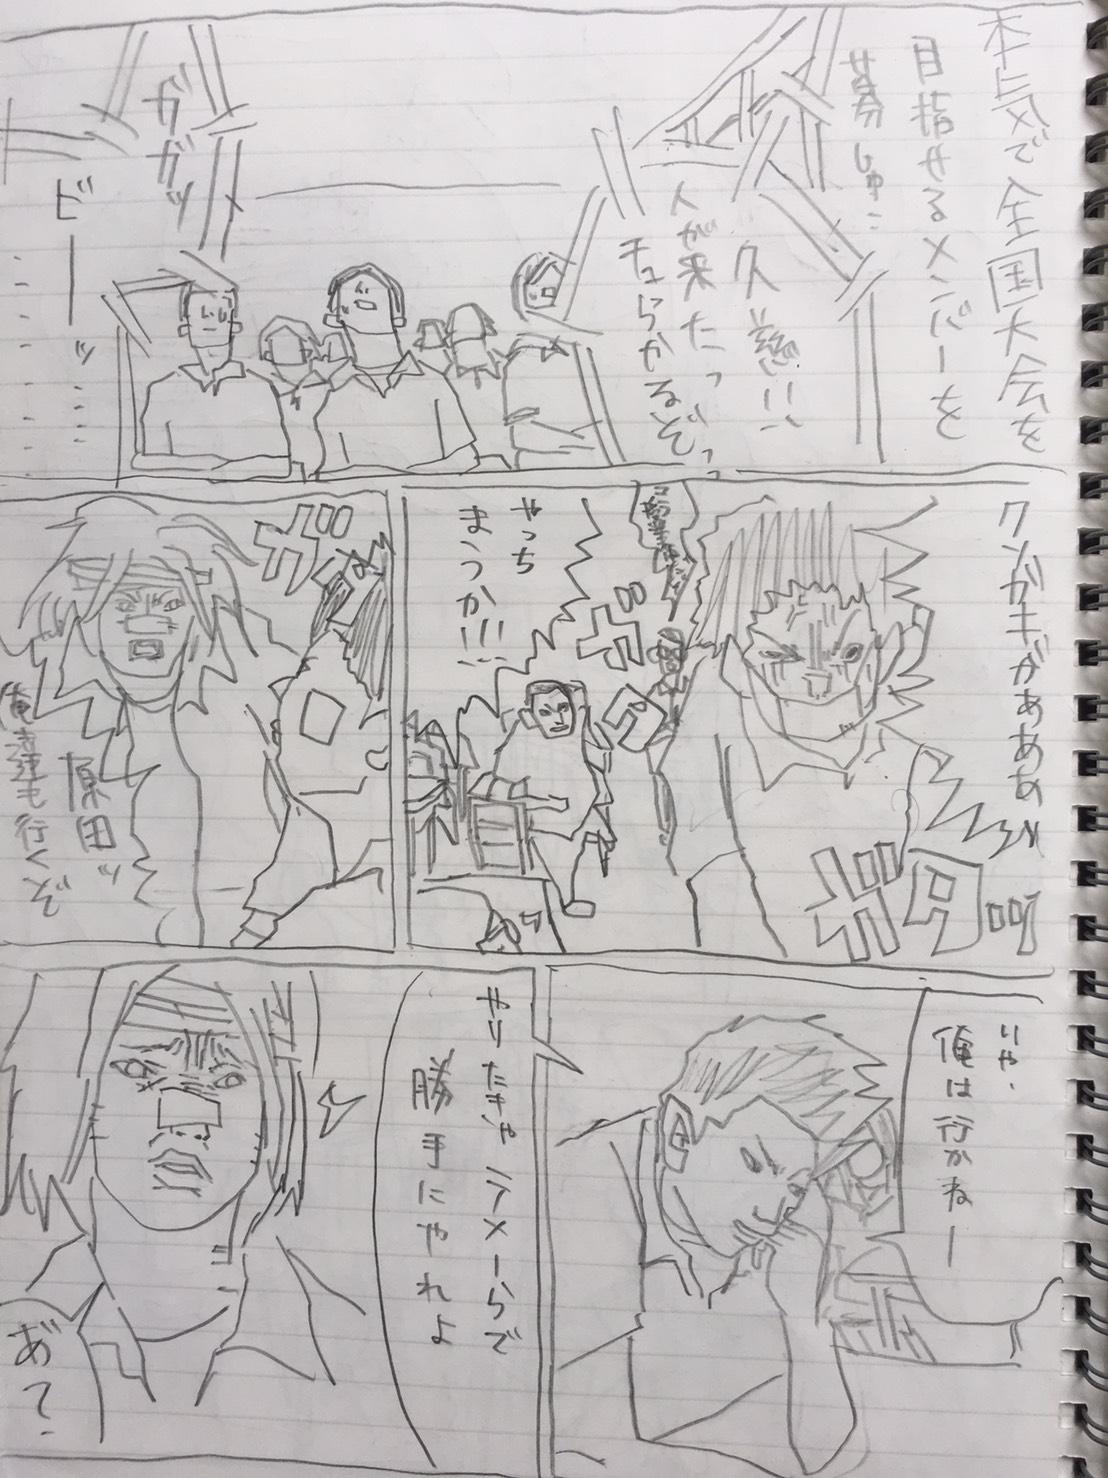 本気で全国大会を
目指せるメンバーを
募しゅう
久慈!!
人が来たっぞっ
チョらかるぞ
ガガッ
ビーーッ
クソガキがぁああ
ガタッ
ガッ
やっち
まうか!!!
ガッ
原田ッ
俺達も行くぞ
いや、
俺は行かねー
やりたきゃテメーらで
勝手にやれよ
あ?